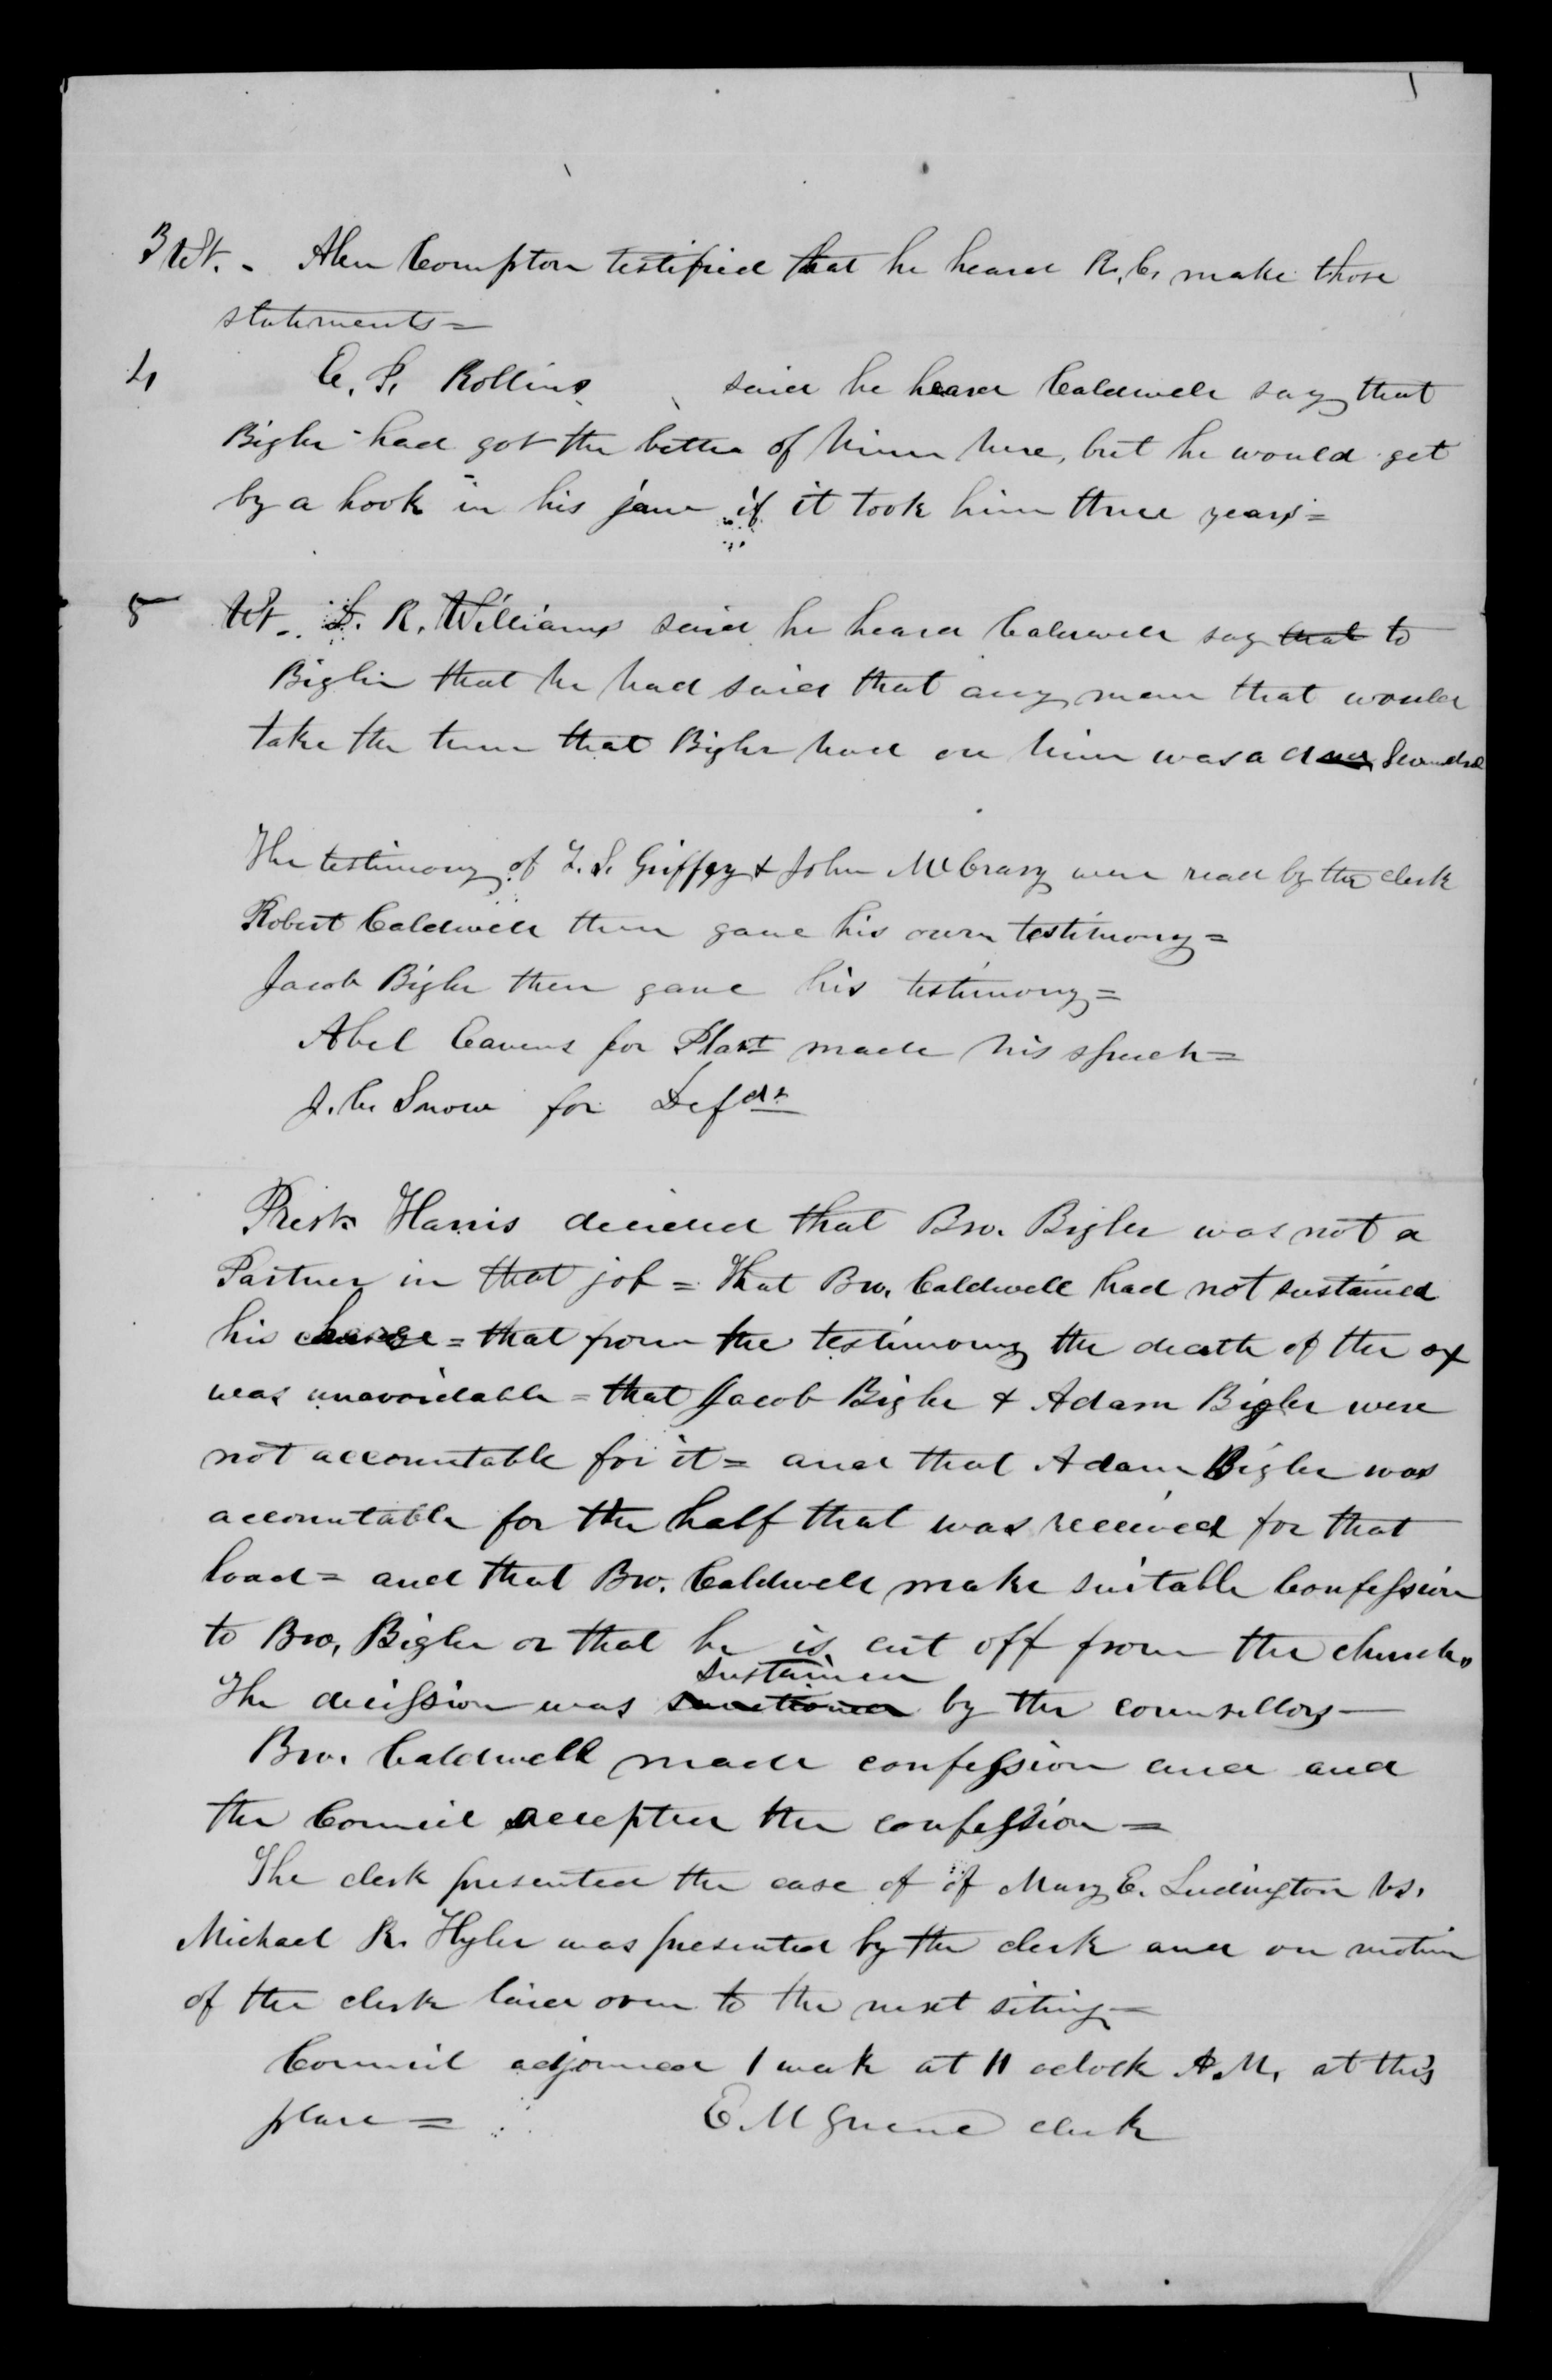 3 Wt. - Allen Compton testified that he heard R. C. make those
statements =
4 C. S. Rollins said he heard Caldwell say that
Bigler had got the better of him here, but he would get
by a hook in his jaw if it took him three years =
5 Wt. L. R. Williams said he heard Caldwell say that to
Bigler that he had said that any man that would
take the turn that Bigler had on him was a d
The testimony of & John McCrary were read by the clerk
Robert Caldwell then gave his own testimony =
Jacob Bigler then gave his testimony =
Abel for Plant made his speech =
J. C. Snow for Defdt
Prest. Harris decided that Bro. Bigler was not a
Partner in that job = That Bro. Caldwell had not sustained
his charge = that from the testimony the death of the ox
was unavoidable = that Jacob Bigler & Adam Bigler were
not accountable for it = and that Adam Bigler was
accountable for the half that was received for that
load = and that Bro. Caldwell make suitable Confession
to Bro. Bigler or that he is cut off from the church.
sustained
The decission was sanctioned by the counsellors —
Bro. Caldwell made confession and and
the Council accepted the confession =
The clerk presented the case of of Mary E. Ludington vs.
Michael R. Hyler was presented by the clerk and on motion
of the clerk laied over to the next siting =
Council adjourned 1 week at 11 oclock A.M. at this
place = E M Greene clerk